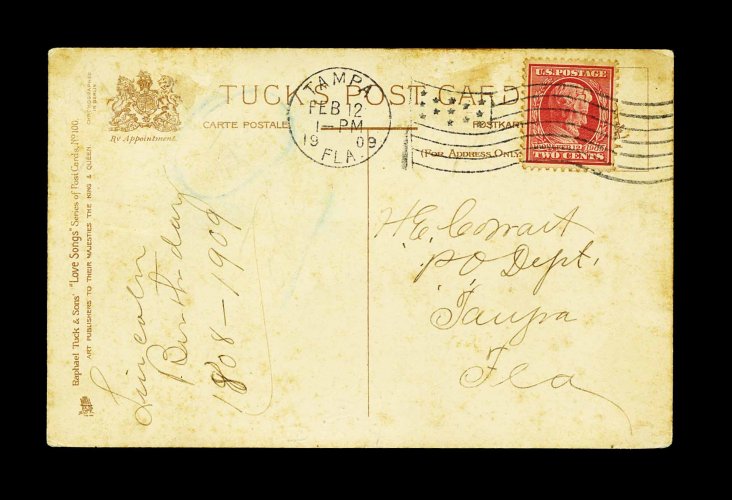 Raphael Tuck & Sons' "Love Songs" Series of Post Cards, No 100.
ART PUBLISHERS TO THEIR MAJESTIES THE KING & QUEEN.
CHROMOGRAPHED
IN BERLIN
By Appointment.
TUCK'S POST CARD
CARTE POSTALE
POSTKARTE
(FOR ADDRESS ONLY)
TAMPA
FEB 12
1-PM
1909
FLA.
U.S. POSTAGE
TWO CENTS
Lincoln
Birthday
1808-1909
PO Dept.
Tampa
Fla